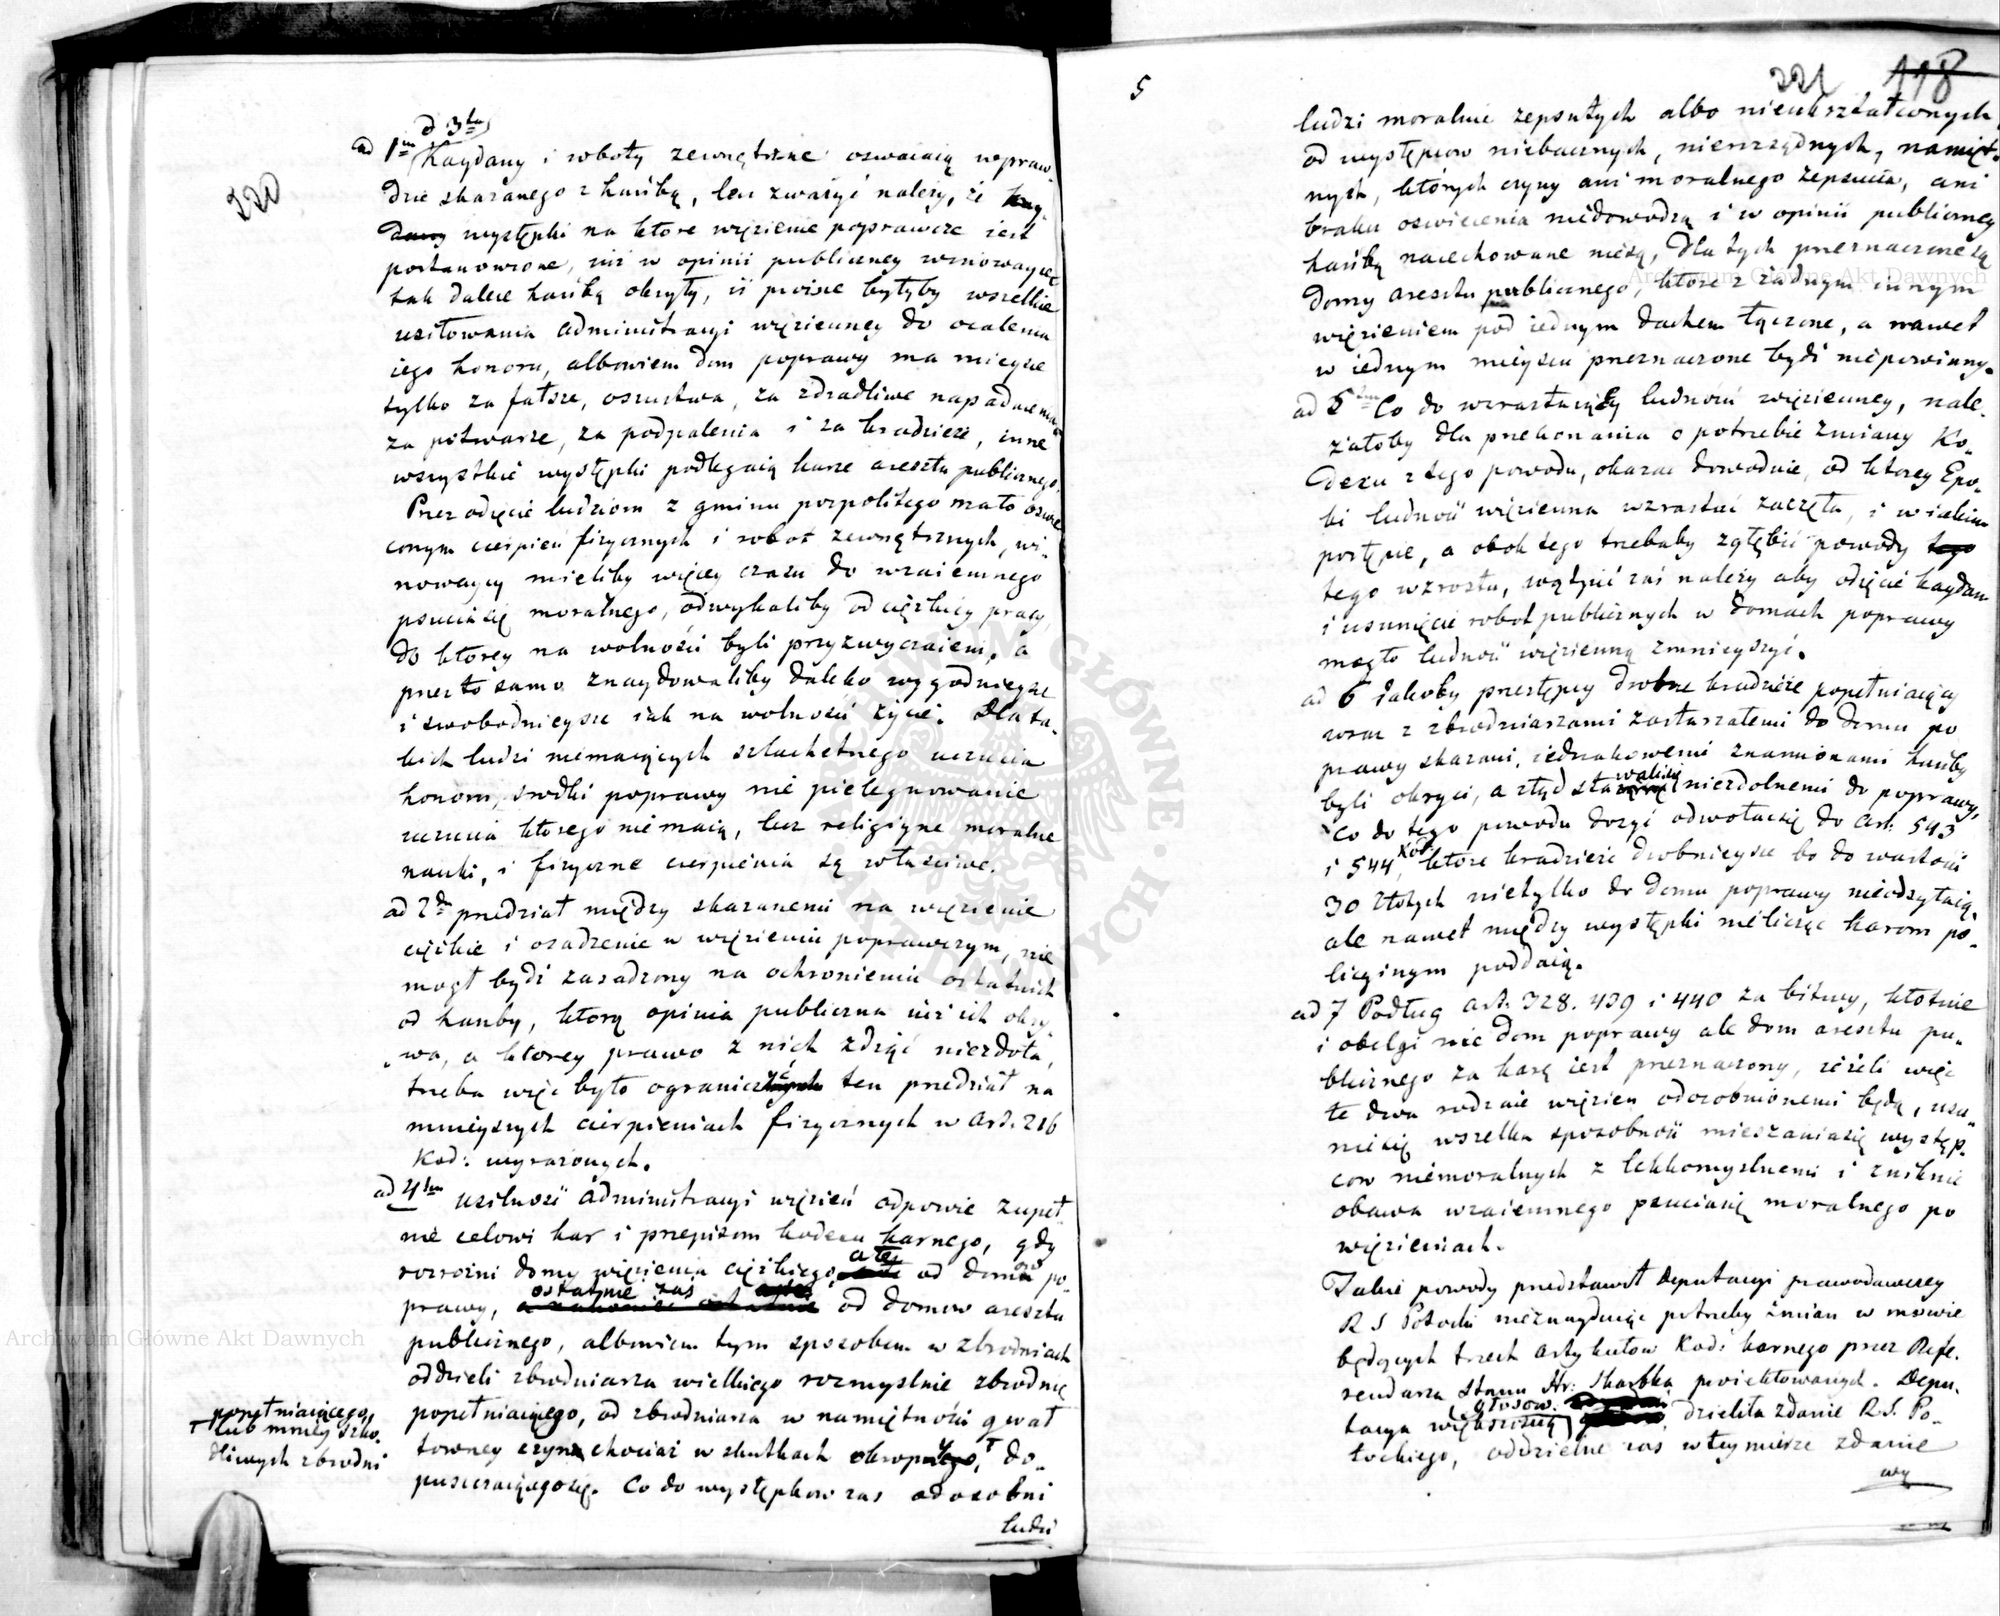 220
d 3tu
ad 1m Kaydany i roboty zewnętrzne oswaiaią wpraw-
dzie skazanego z hańbą, lecz zważyć należy, że kay-
dany występki na które więzienie poprawcze iest
postanowione, już w opinii publiczney winowaycę
tak dalece hańbą okryły, iż próżne byłyby wszelkie
usiłowania administracyi więzienney do ocalenia
iego honoru, albowiem dom poprawy ma mieysce
tylko za fałsze, oszustwa, za zdradliwe napadnienia
za potwarze, za podpalenia i za kradzieże, inne
wszystkie występki podlegaią karze aresztu publicznego.
Przez odięcie ludziom z gminu pospolitego mało oświe
conym cierpień fizycznych i robot zewnętrznych, wi-
nowaycy mieliby więcey czasu do wzaiemnego
psucia się moralnego, odwykaliby od ciężkiey pracy,
do ktorey na wolności byli przyzwyczaieni, a
przez to samo znaydowaliby daleko wygodnieysze
i swobodnieysze iak na wolności życie. Dla ta-
kich ludzi niemaiących szlachetnego uczucia
honoru, srodki poprawy nie pielęgnowanie
uczucia ktorego niemaią, lecz religiyne moralne
nauki, i fizyczne cierpienia są właściwe.
ad 2do przedział między skazanemi na więzienie
ciężkie i osadzenie w więzieniu poprawczym, nie
mogł bydź zasadzony na ochronieniu ostatnich
od hanby, którą opinia publiczna już ich okry-
wa, a ktorey prawo z nich zdiąć niezdoła,
trzeba więc było ograniczyć ten przedział na
mnieyszych cierpieniach fizycznych w Art. 216
Kod: wyrażonych.
ad 4tum usilność administracyi więzień odpowie zupeł-
nie celowi kar i przepisom kodexu karnego, gdy
rozrożni domy więzienia ciężkiego, a te od domow po-
prawy, ostatnie zaś od domow aresztu
publicznego, albowiem tym sposobem w zbrodniach
oddzieli zbrodniarza wielkiego rozmyslnie zbrodnię
popełniaiącego, od zbrodniarza w namiętności gwał
towney czyn chociaż w skutkach okropny, do-
puszczaiącego się. Co do występkow zas odosobni
ludzi
popełniaiącego,
lub mniey szko-
dliwych zbrodni
5
221 118
ludzi moralnie zepsutych albo nieukształconych,
od występcow niebacznych, nierządnych, namięt-
nych, których czyny ani moralnego zepsucia, ani
braku oswiecenia niedowodzą i w opinii publiczney
hańbą nacechowane niesą, dla tych przeznaczone są
domy aresztu publicznego, które z żadnym innym
więzieniem pod iednym dachem łączone, a nawet
w iednym mieyscu przeznaczone bydź niepowinny.
ad 5tum Co do wzrastaiącey ludności więzienney, nale-
żałoby dla przekonania o potrzebie zmiany Ko-
dexu z tego powodu, okazać dowodnie, od ktorey Epo-
ki ludność więzienna wzrastać zaczęła, i w iakim
postępie, a obok tego trzebaby zgłębić powody tego
tego wzrostu, wątpić zaś należy aby odięcie kaydan
i usunięcie robot publicznych w domach poprawy
mogło ludność więzienną zmnieyszyć.
ad 6 Jakoby przestępcy drobne kradzieże popełniaiący
wraz z zbrodniarzami zastarzałemi do domu po
prawy skazani, iednakowemi znamionami hańby
byli okryci, a ztąd stawali się niezdolnemi do poprawy,
Co do tego powodu dosyć odwołać się do Art. 543
i 544 Kod: które kradzieże drobnieysze bo do wartości
30 złotych nietylko do domu poprawy nieodsyłaią,
ale nawet między występki nielicząc karom po-
licyinym poddaią.
ad 7 Podług art. 328. 439 i 440 za bitwy, kłótnie
i obelgi nie dom poprawy ale dom aresztu pu-
blicznego za karę iest przeznaczony, ieżeli więc
te dwa rodzaie więzien odosobnionemi będą, usu-
nie się wszelka sposobność mieszania się występ-
cow niemoralnych z lekkomyslnemi i zniknie
obawa wzaiemnego psucia się moralnego po
więzieniach.
Takie powody przedstawił Deputacyi prawodawczey
R S Potocki nieznayduiąc potrzeby zmian w mowie
będących trzech artykułow Kod: karnego przez Refe-
rendarza Stanu Hr: Skarbka proiektowanych. Depu-
tacya większością głosow dzieliła zdanie R.S. Po-
tockiego, oddzielne zas w tey mierze zdanie
wy